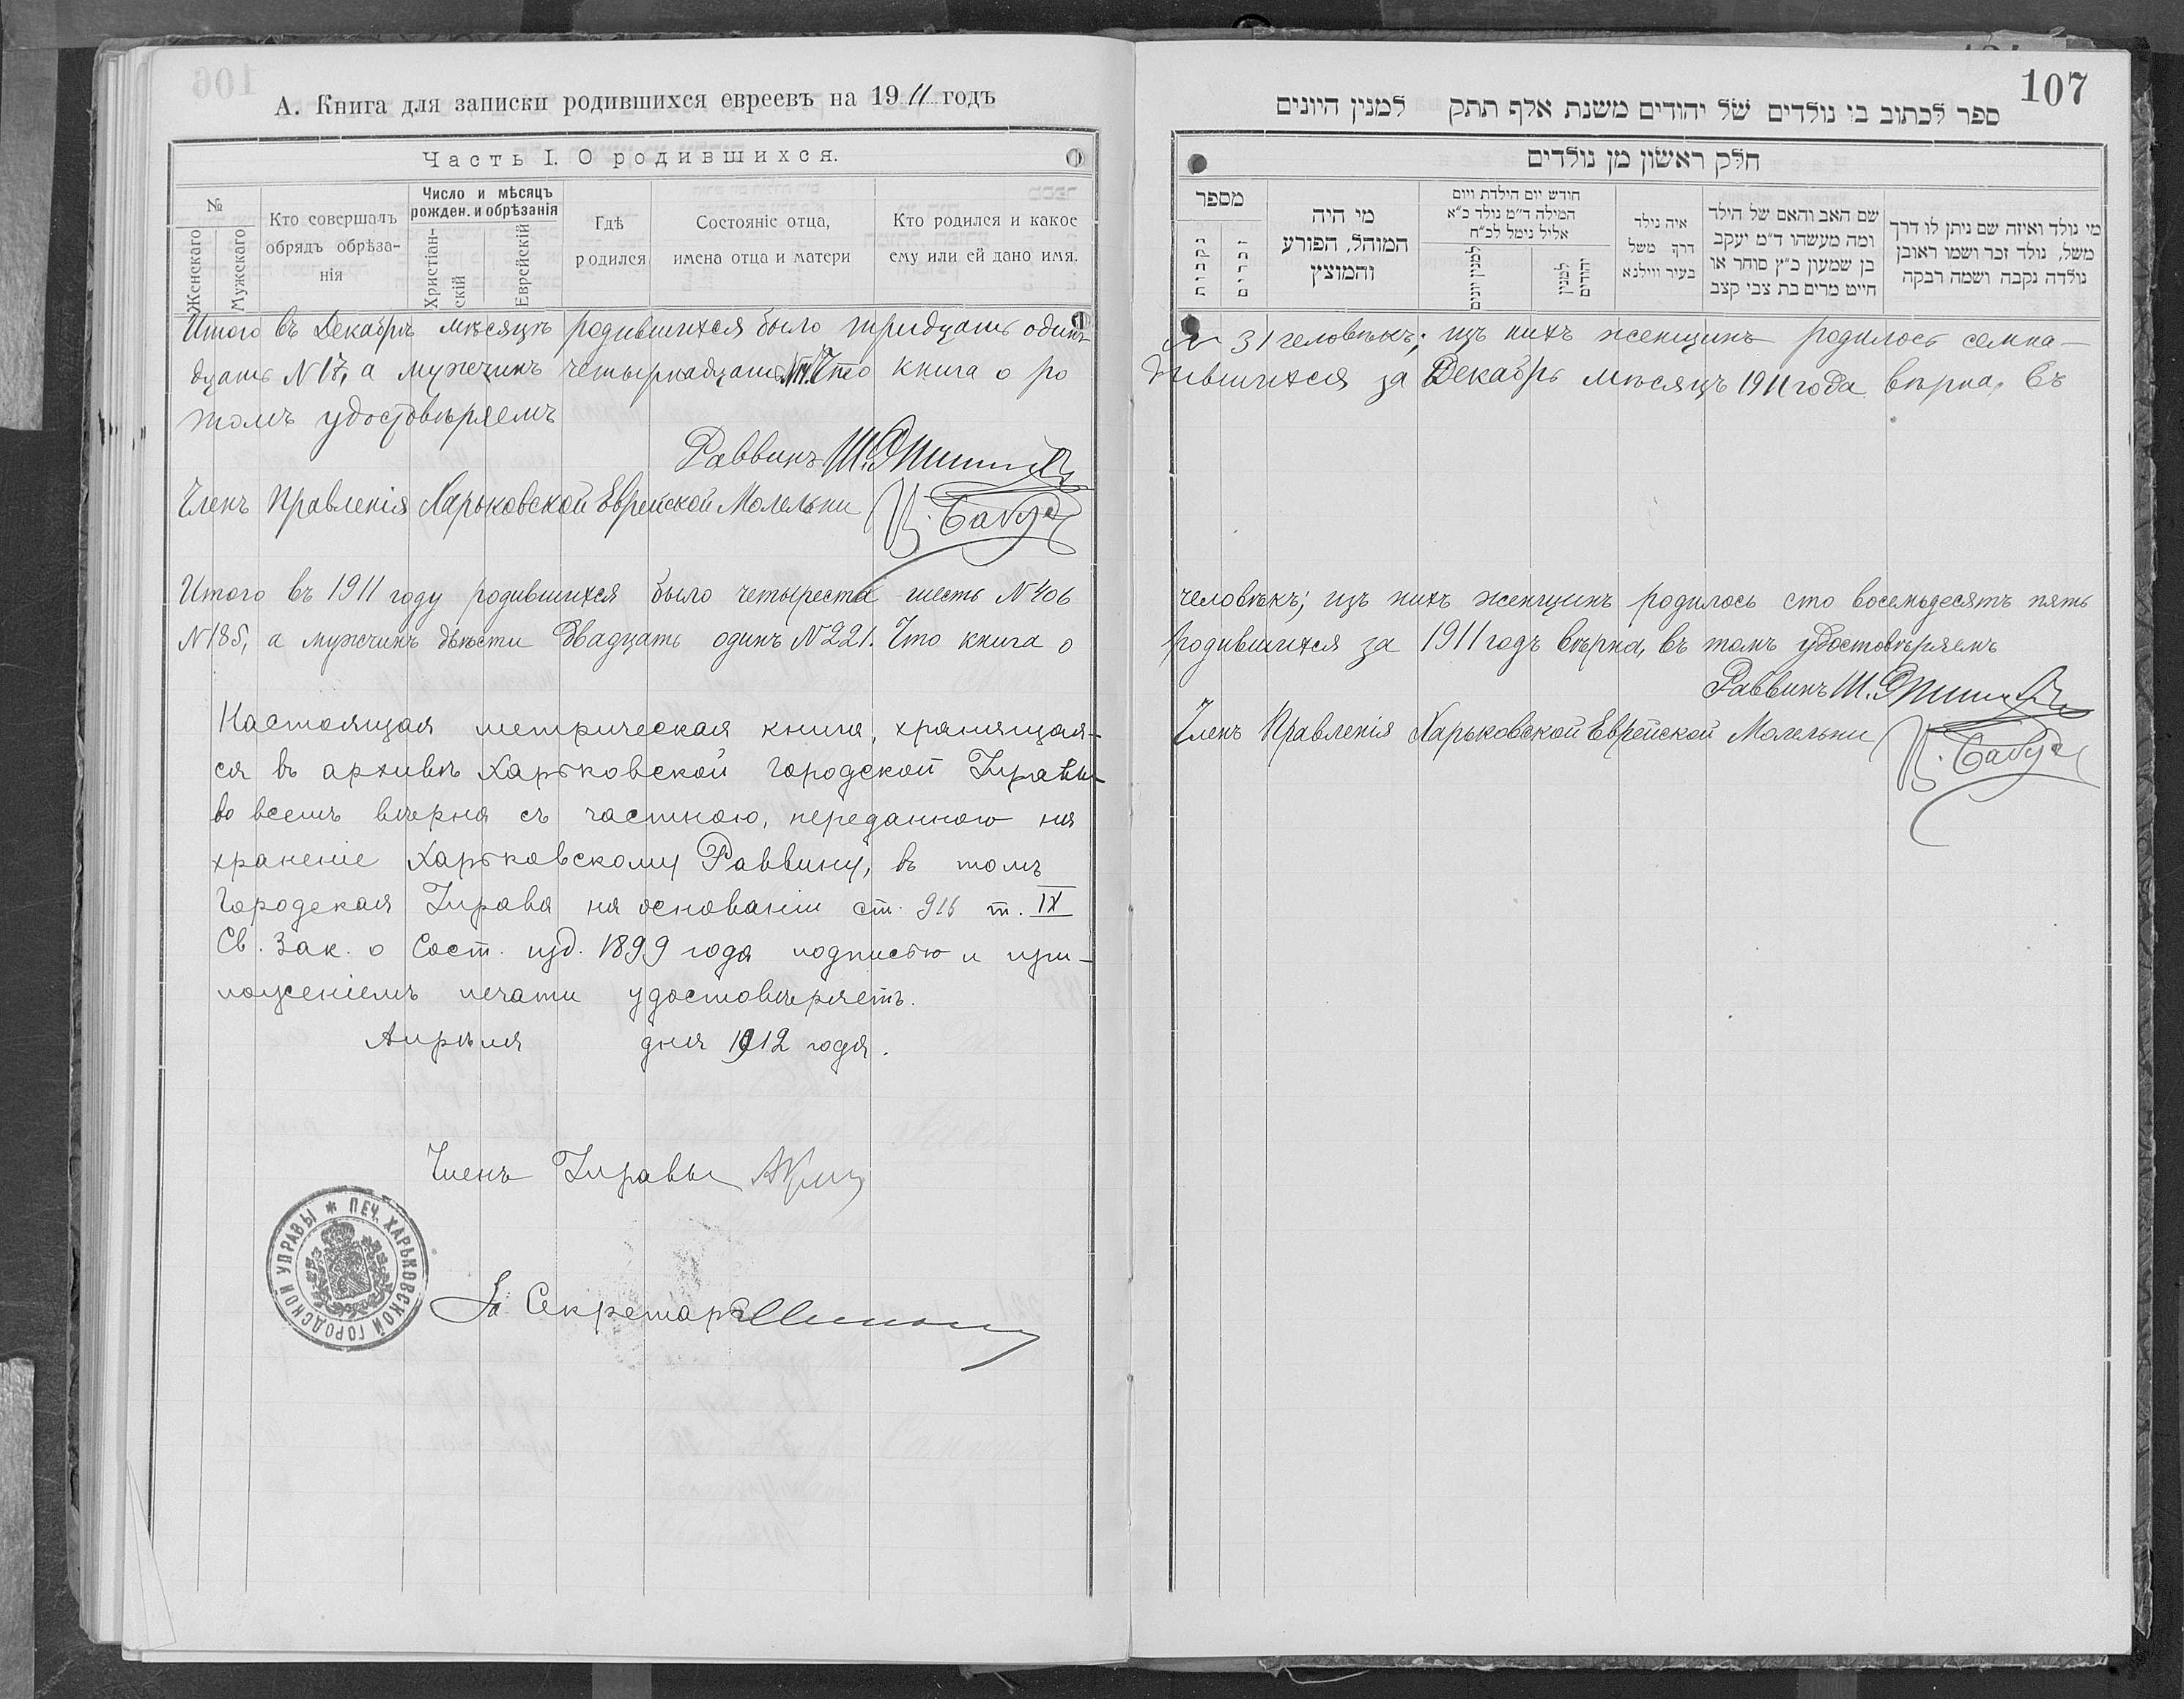 А. Книга для записки родившихся евреевъ на 1911 годъ
Часть I. О родившихся.
№
Женскаго
Мужскаго
Кто совершалъ
обрядъ обрѣза-
нія
Число и мѣсяцъ
рожден. и обрѣзанія
Христіан-
скій
Еврейскій
Гдѣ
родился
Состояніе отца,
имена отца и матери
Кто родился и какое
ему или ей дано имя.
Итого въ Декабрѣ мѣсяцѣ родившихся было тридцать одинъ
дцать N 17, а мужчинъ четырнадцать N14. Что книга о ро
томъ удостовѣряемъ
Раввинъ Ш.
Членъ Правленія Харьковской Еврейской Молельни
Итого въ 1911 году родившихся было четыреста шесть N 406
N 185, а мужчинъ двѣсти двадцать одинъ N 221. Что книга о
Настоящая метрическая книга, хранящая-
ся въ архивѣ Харьковской Городской Управы
во всемъ вѣрна съ частною, переданною на
храненіе Харьковскому Раввину, въ томъ
Городская Управа на основаніи ст. 916 т. IX
Св. Зак. о Сост. изд. 1899 года подписью и при-
ложеніемъ печати удостовѣряетъ.
Апрѣля дня 1912 года.
Членъ Управы
За Секретаря
ПЕЧ. ХАРЬКОВСКОЙ ГОРОДСКОЙ УПРАВЫ
107
ספר לכתוב בו נולדים של יהודים משנת אלף תתק למנין היונים
חלק ראשון מן נולדים
מספר
נקבות
זכרים
מי היה
המוהל, הפורע
והמוצץ
חודש יום הילדת ויום
המילה ד״מ נולד כ״א
אליל נימל לכ״ח
למנין יונים
למנין
יהודים
איה נילד
דרך משל
בעיר ווילנא
שם האב והאם של הילד
ומה מעשהו ד״מ יעקב
בן שמעון כ״ץ סוחר או
חייט מרים בת צבי קצב
מי נולד ואיזה שם ניתן לו דרך
משל, נולד זכר ושמו ראובן
נולדה נקבה ושמה רבקה
N 31 человѣкъ; изъ нихъ женщинъ родилось семна-
дившихся за Декабрь мѣсяцъ 1911 года вѣрна, въ
человѣкъ; изъ нихъ женщинъ родилось сто восемьдесятъ пять
родившихся за 1911 годъ вѣрна, въ томъ удостовѣряемъ
Раввинъ Ш.
Членъ Правленія Харьковской Еврейской Молельни